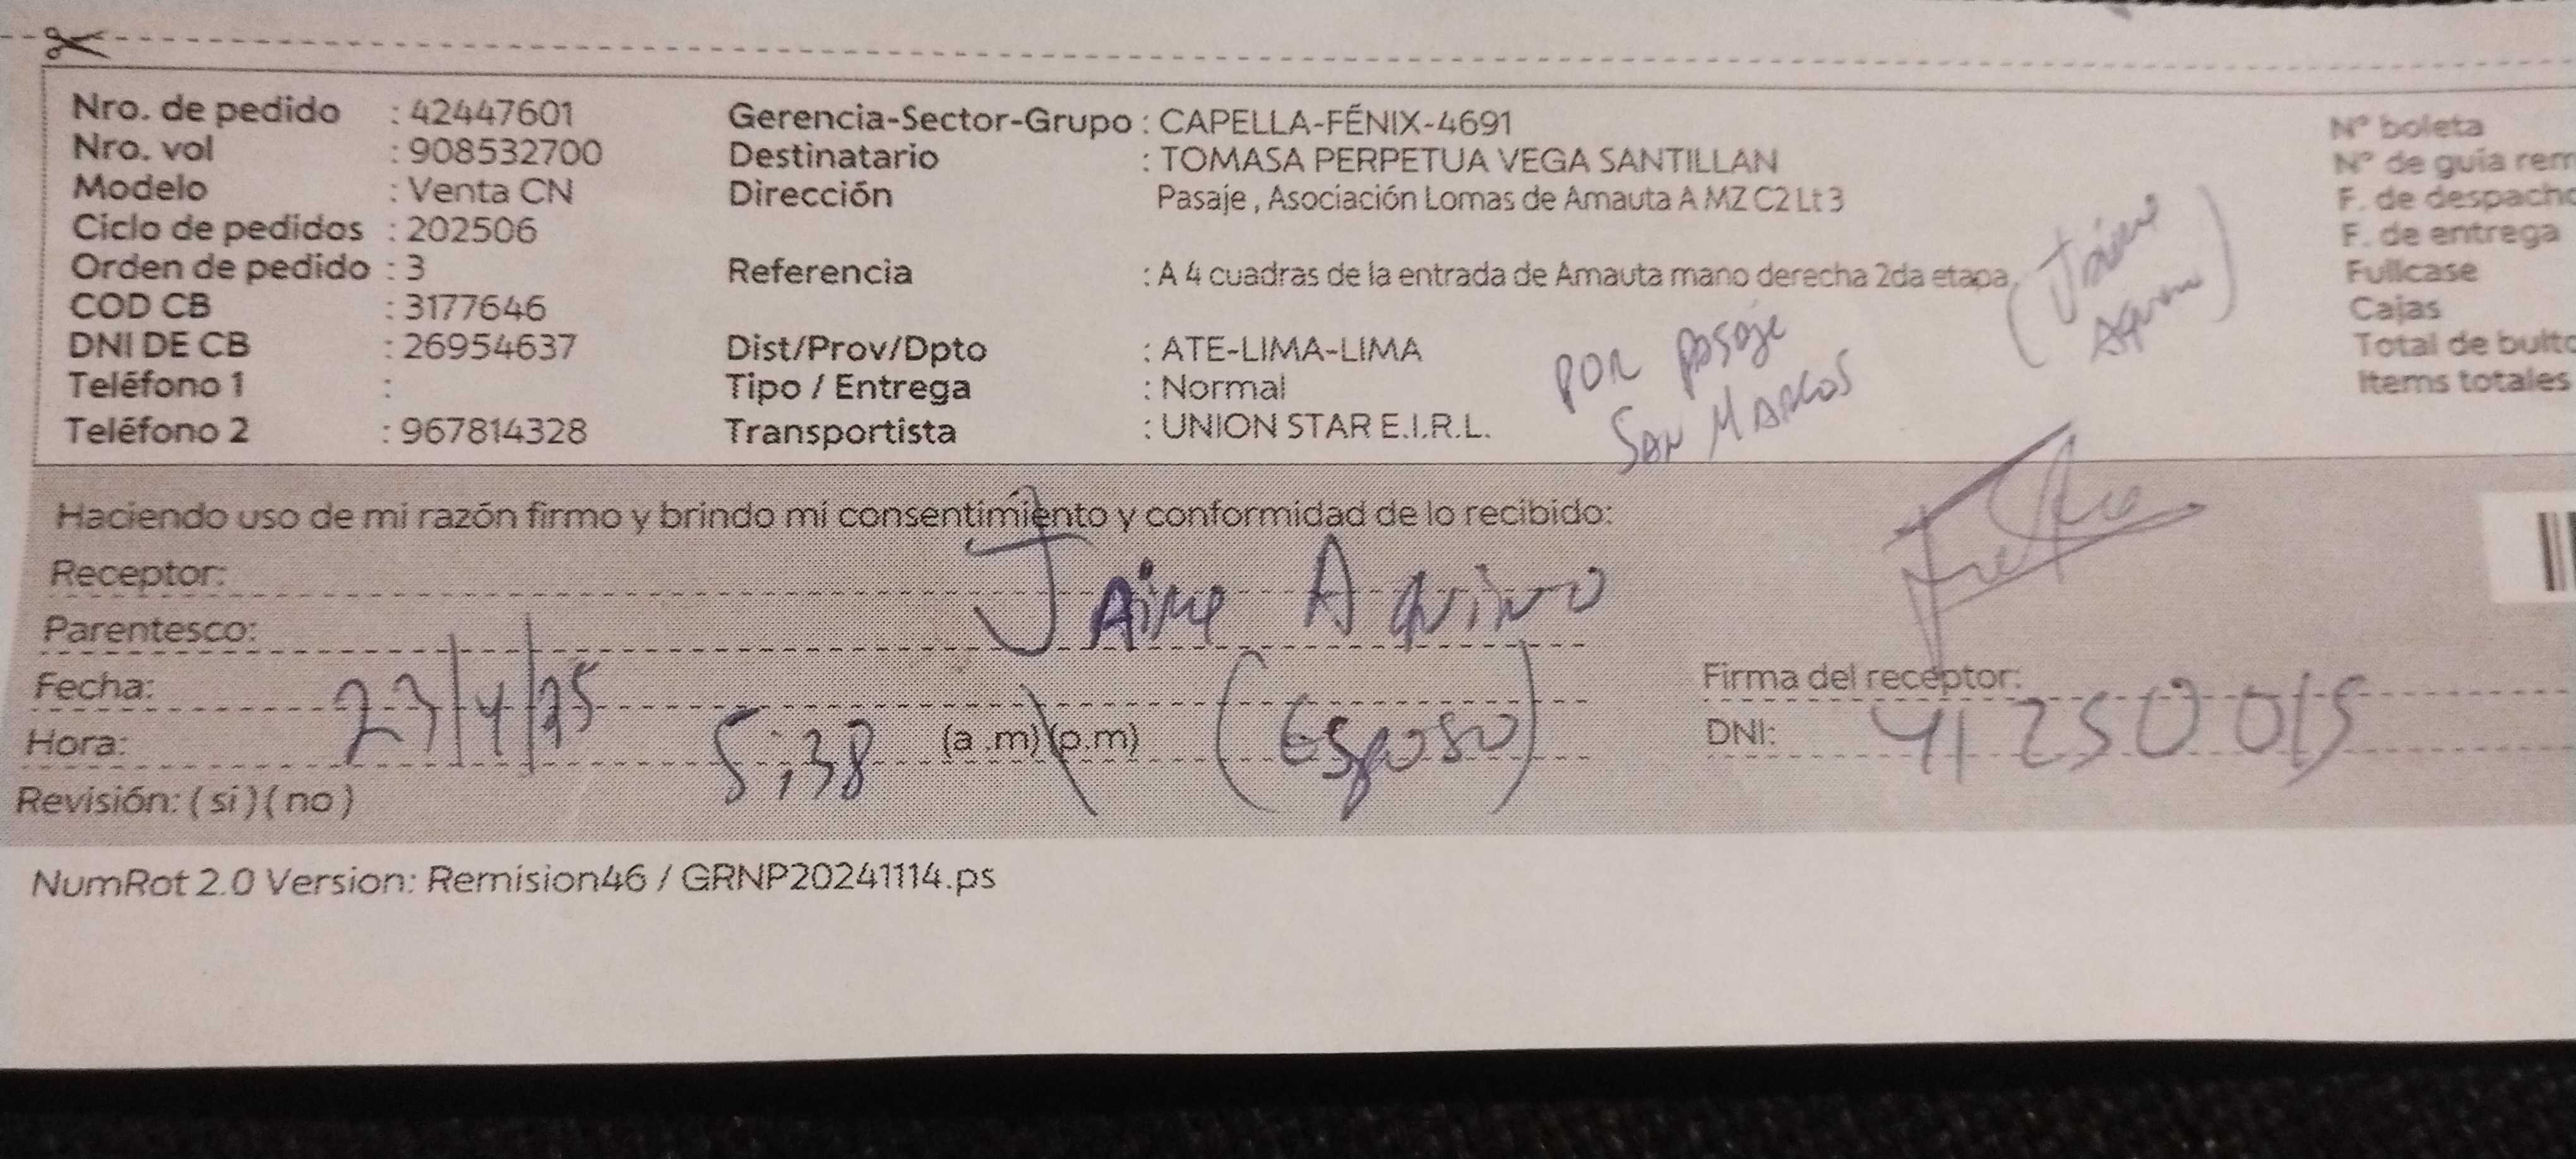 Nro. de pedido : 42447601
Nro. vol : 908532700
Modelo : Venta CN
Ciclo de pedidos : 202506
Orden de pedido : 3
COD CB : 3177646
DNI DE CB : 26954637
Teléfono 1 :
Teléfono 2 : 967814328
Gerencia-Sector-Grupo : CAPELLA-FÉNIX-4691
Destinatario : TOMASA PERPETUA VEGA SANTILLAN
Dirección Pasaje , Asociación Lomas de Amauta A MZ C2 Lt 3
Referencia : A 4 cuadras de la entrada de Amauta mano derecha 2da etapa
Dist/Prov/Dpto : ATE-LIMA-LIMA
Tipo / Entrega : Normal
Transportista : UNION STAR E.I.R.L.
POR PASAJE
SAN MARCOS
(Jaime
)
N° boleta
N° de guia rem
F. de despacho
F. de entrega
Fullcase
Cajas
Total de bulto
Items totales
Haciendo uso de mi razón firmo y brindo mi consentimiento y conformidad de lo recibido:
Receptor: Jaime Aquino
Parentesco:
Fecha: 23/4/25
Hora: 5:38 (a .m) (p.m) (Esposo)
Revisión: ( si ) ( no )
Firma del receptor:
DNI: 41250015
NumRot 2.0 Version: Remision46 / GRNP20241114.ps